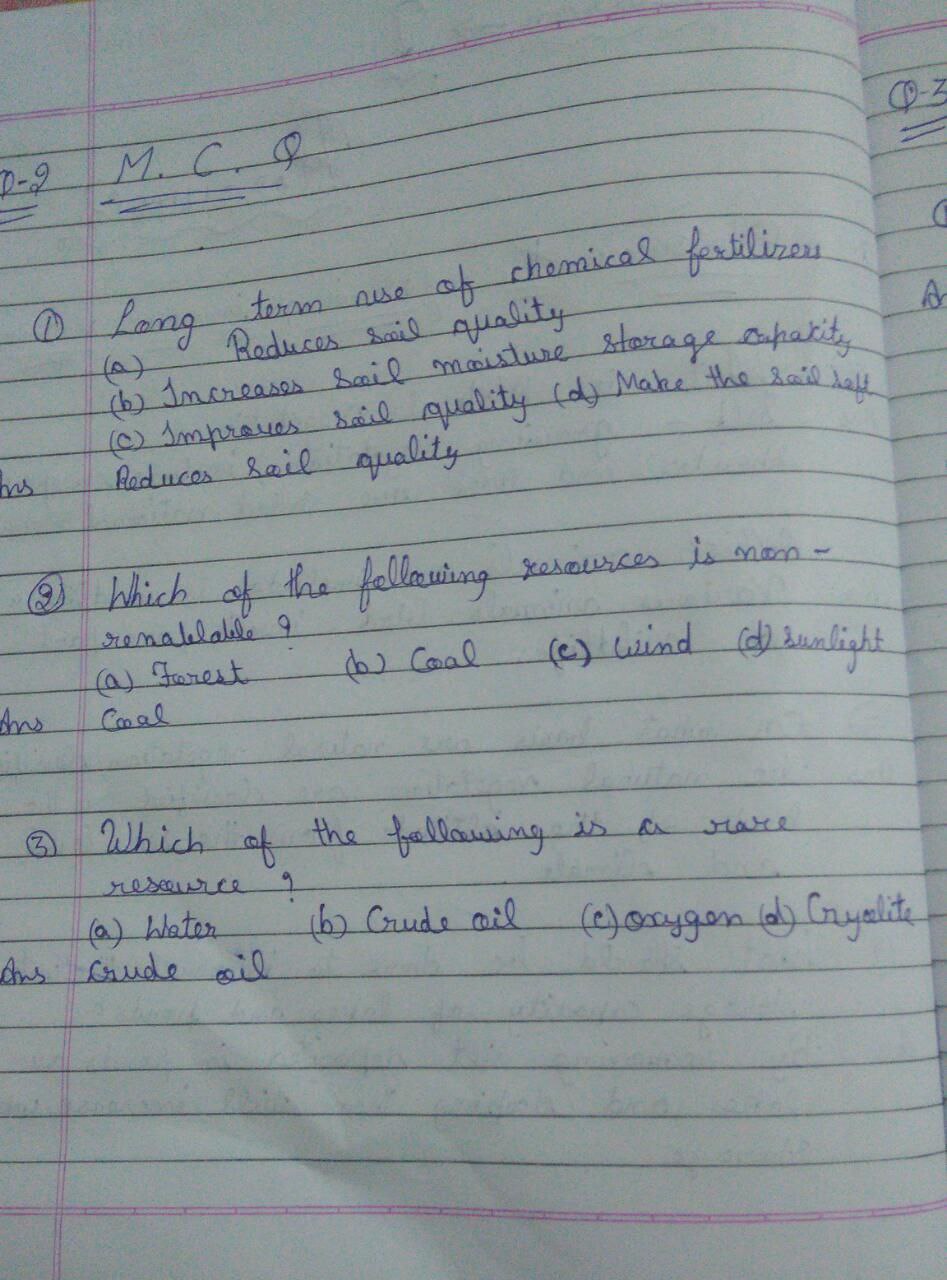 Q-2 M. C. Q
① Long term use of chemical fertilizers
(a) Reduces soil quality
(b) Increases soil moisture storage capakity
(c) Improves soil quality (d) Make the soil soft
Ans Reduces soil quality
② Which of the following resources is non-
renablable ?
(a) Forest (b) Coal (c) Wind (d) Sunlight
Ans Coal
③ Which of the following is a rare
resource ?
(a) Water (b) Crude oil (c) oxygen (d) Cryolite
Ans Crude oil
Q-3